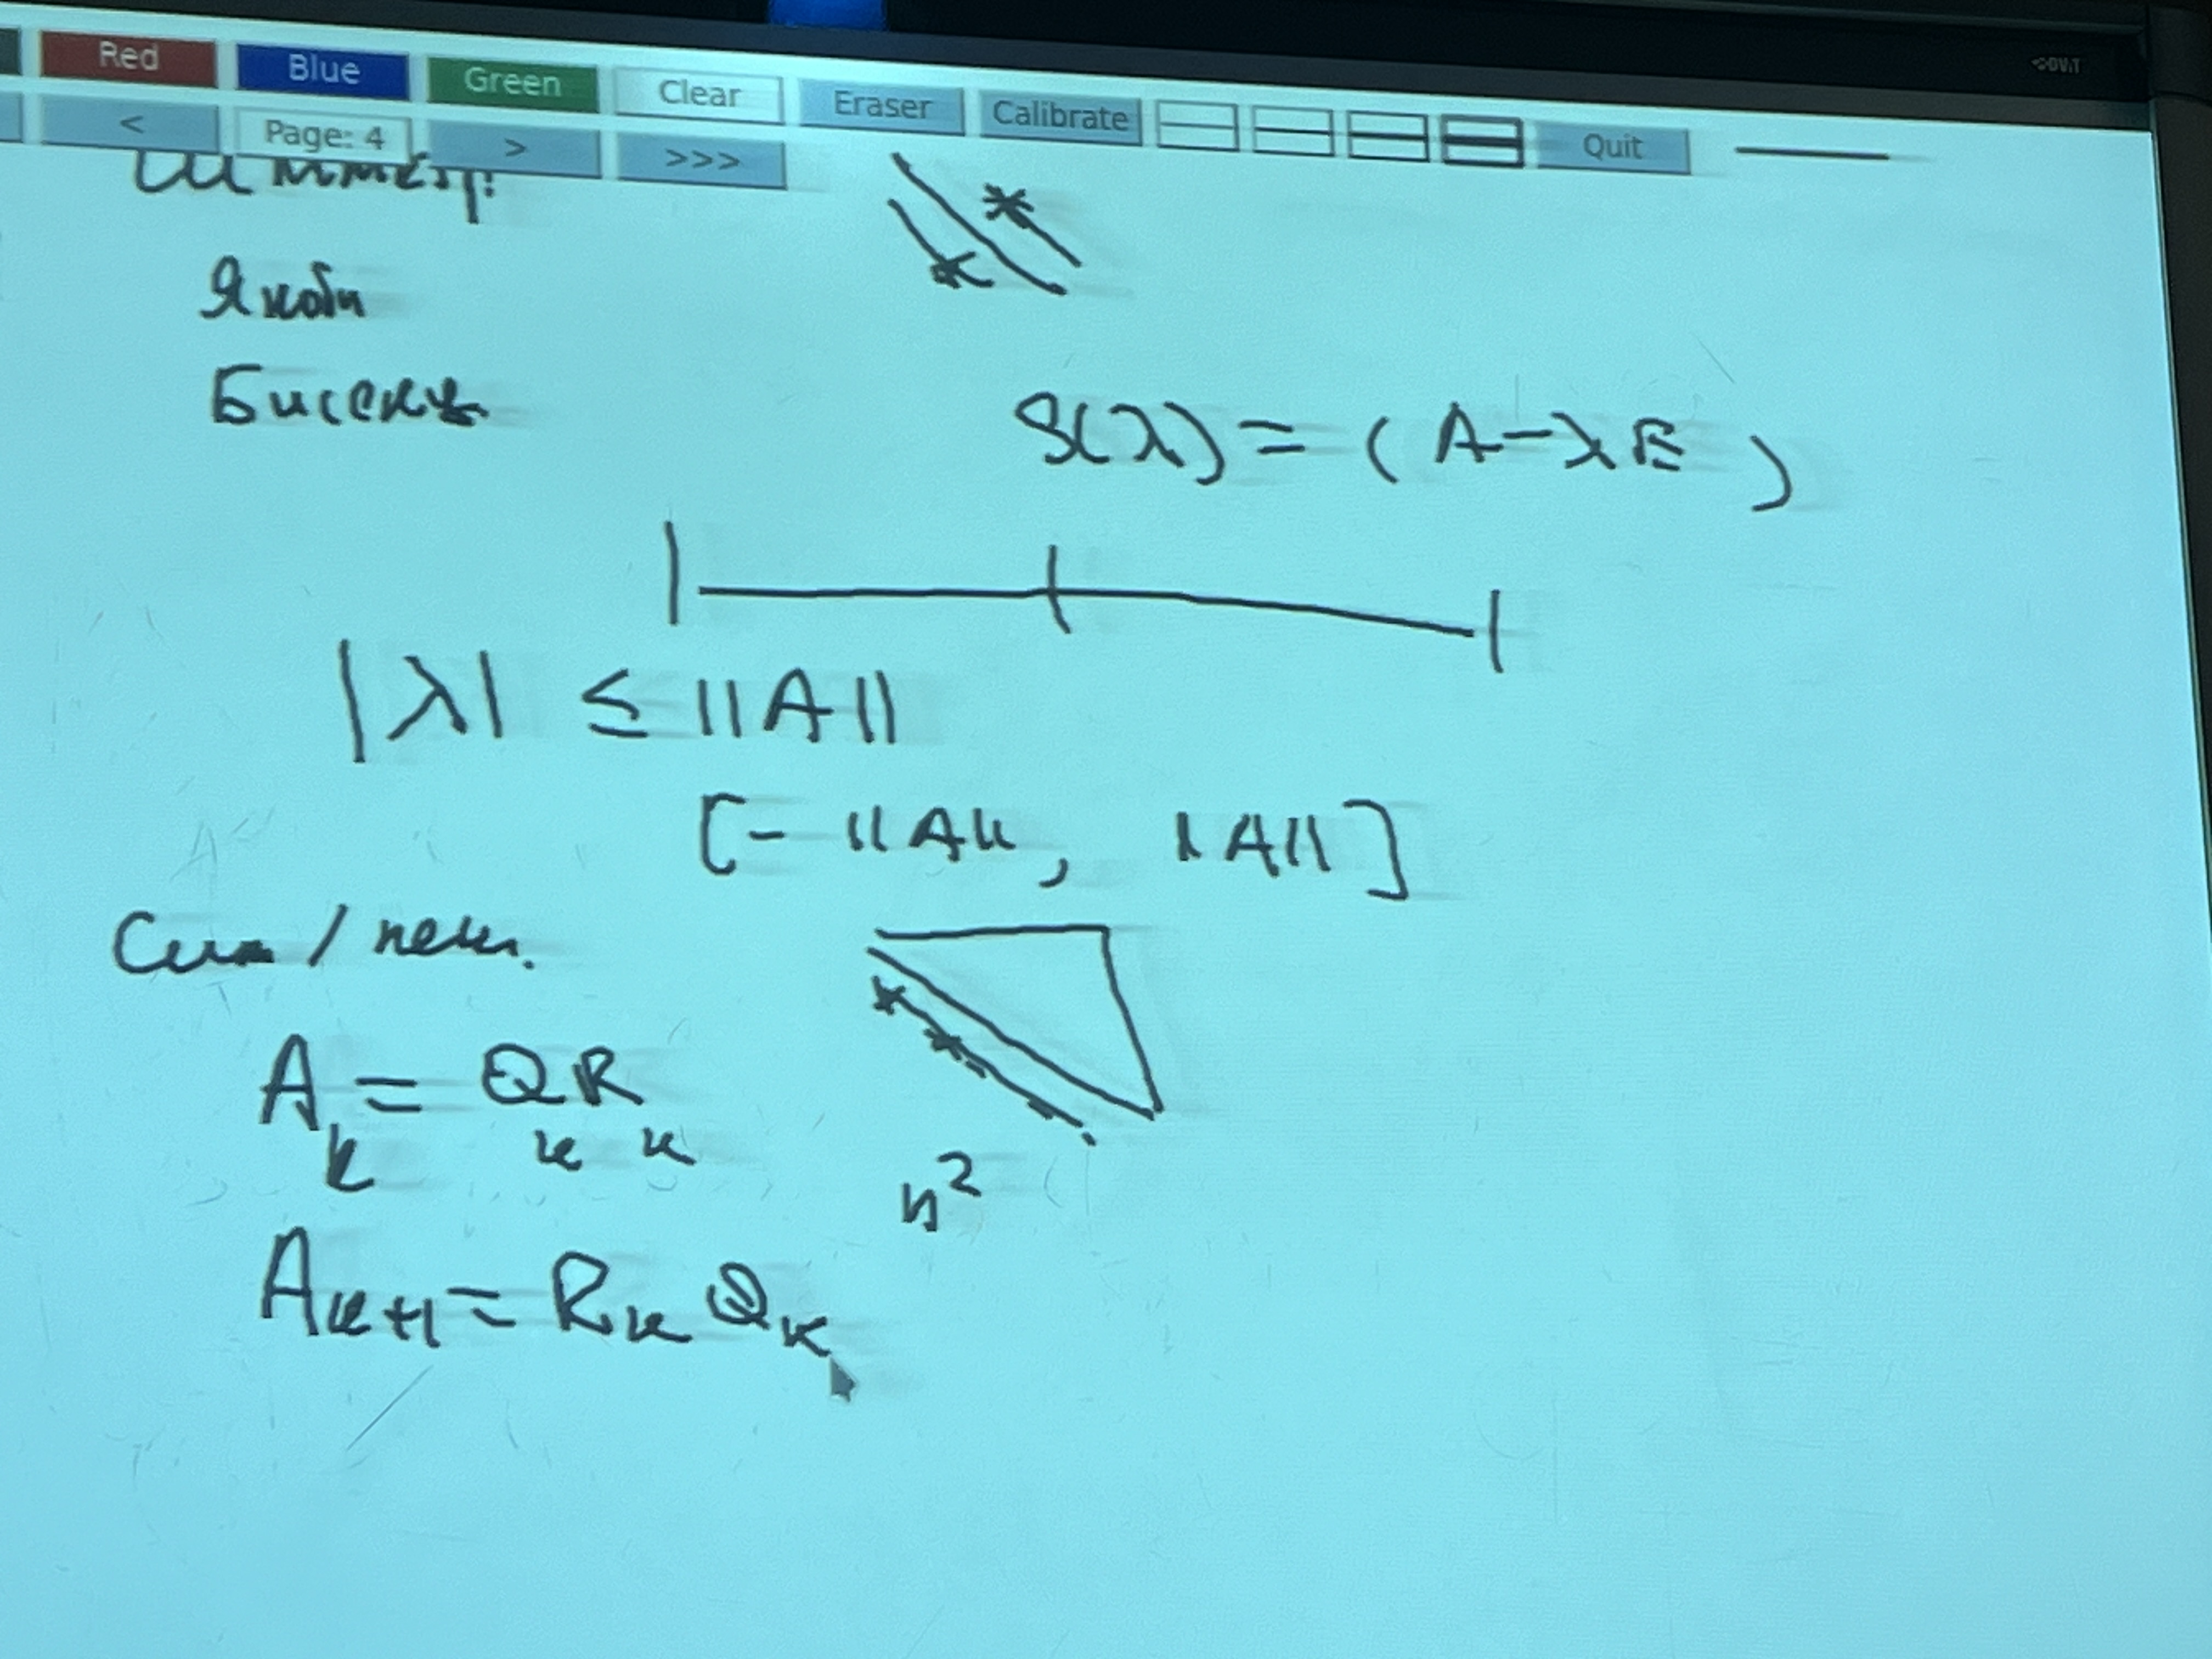 Red Blue Green Clear Eraser Calibrate Quit
< Page: 4 > >>>
Якоби
Бисекц
S(λ) = (A-λE )
|λ| ≤ ||A||
[- ||A||, ||A||]
Сим / неси.
A_k = Q_k R_k
n²
A_{k+1} = R_k Q_k